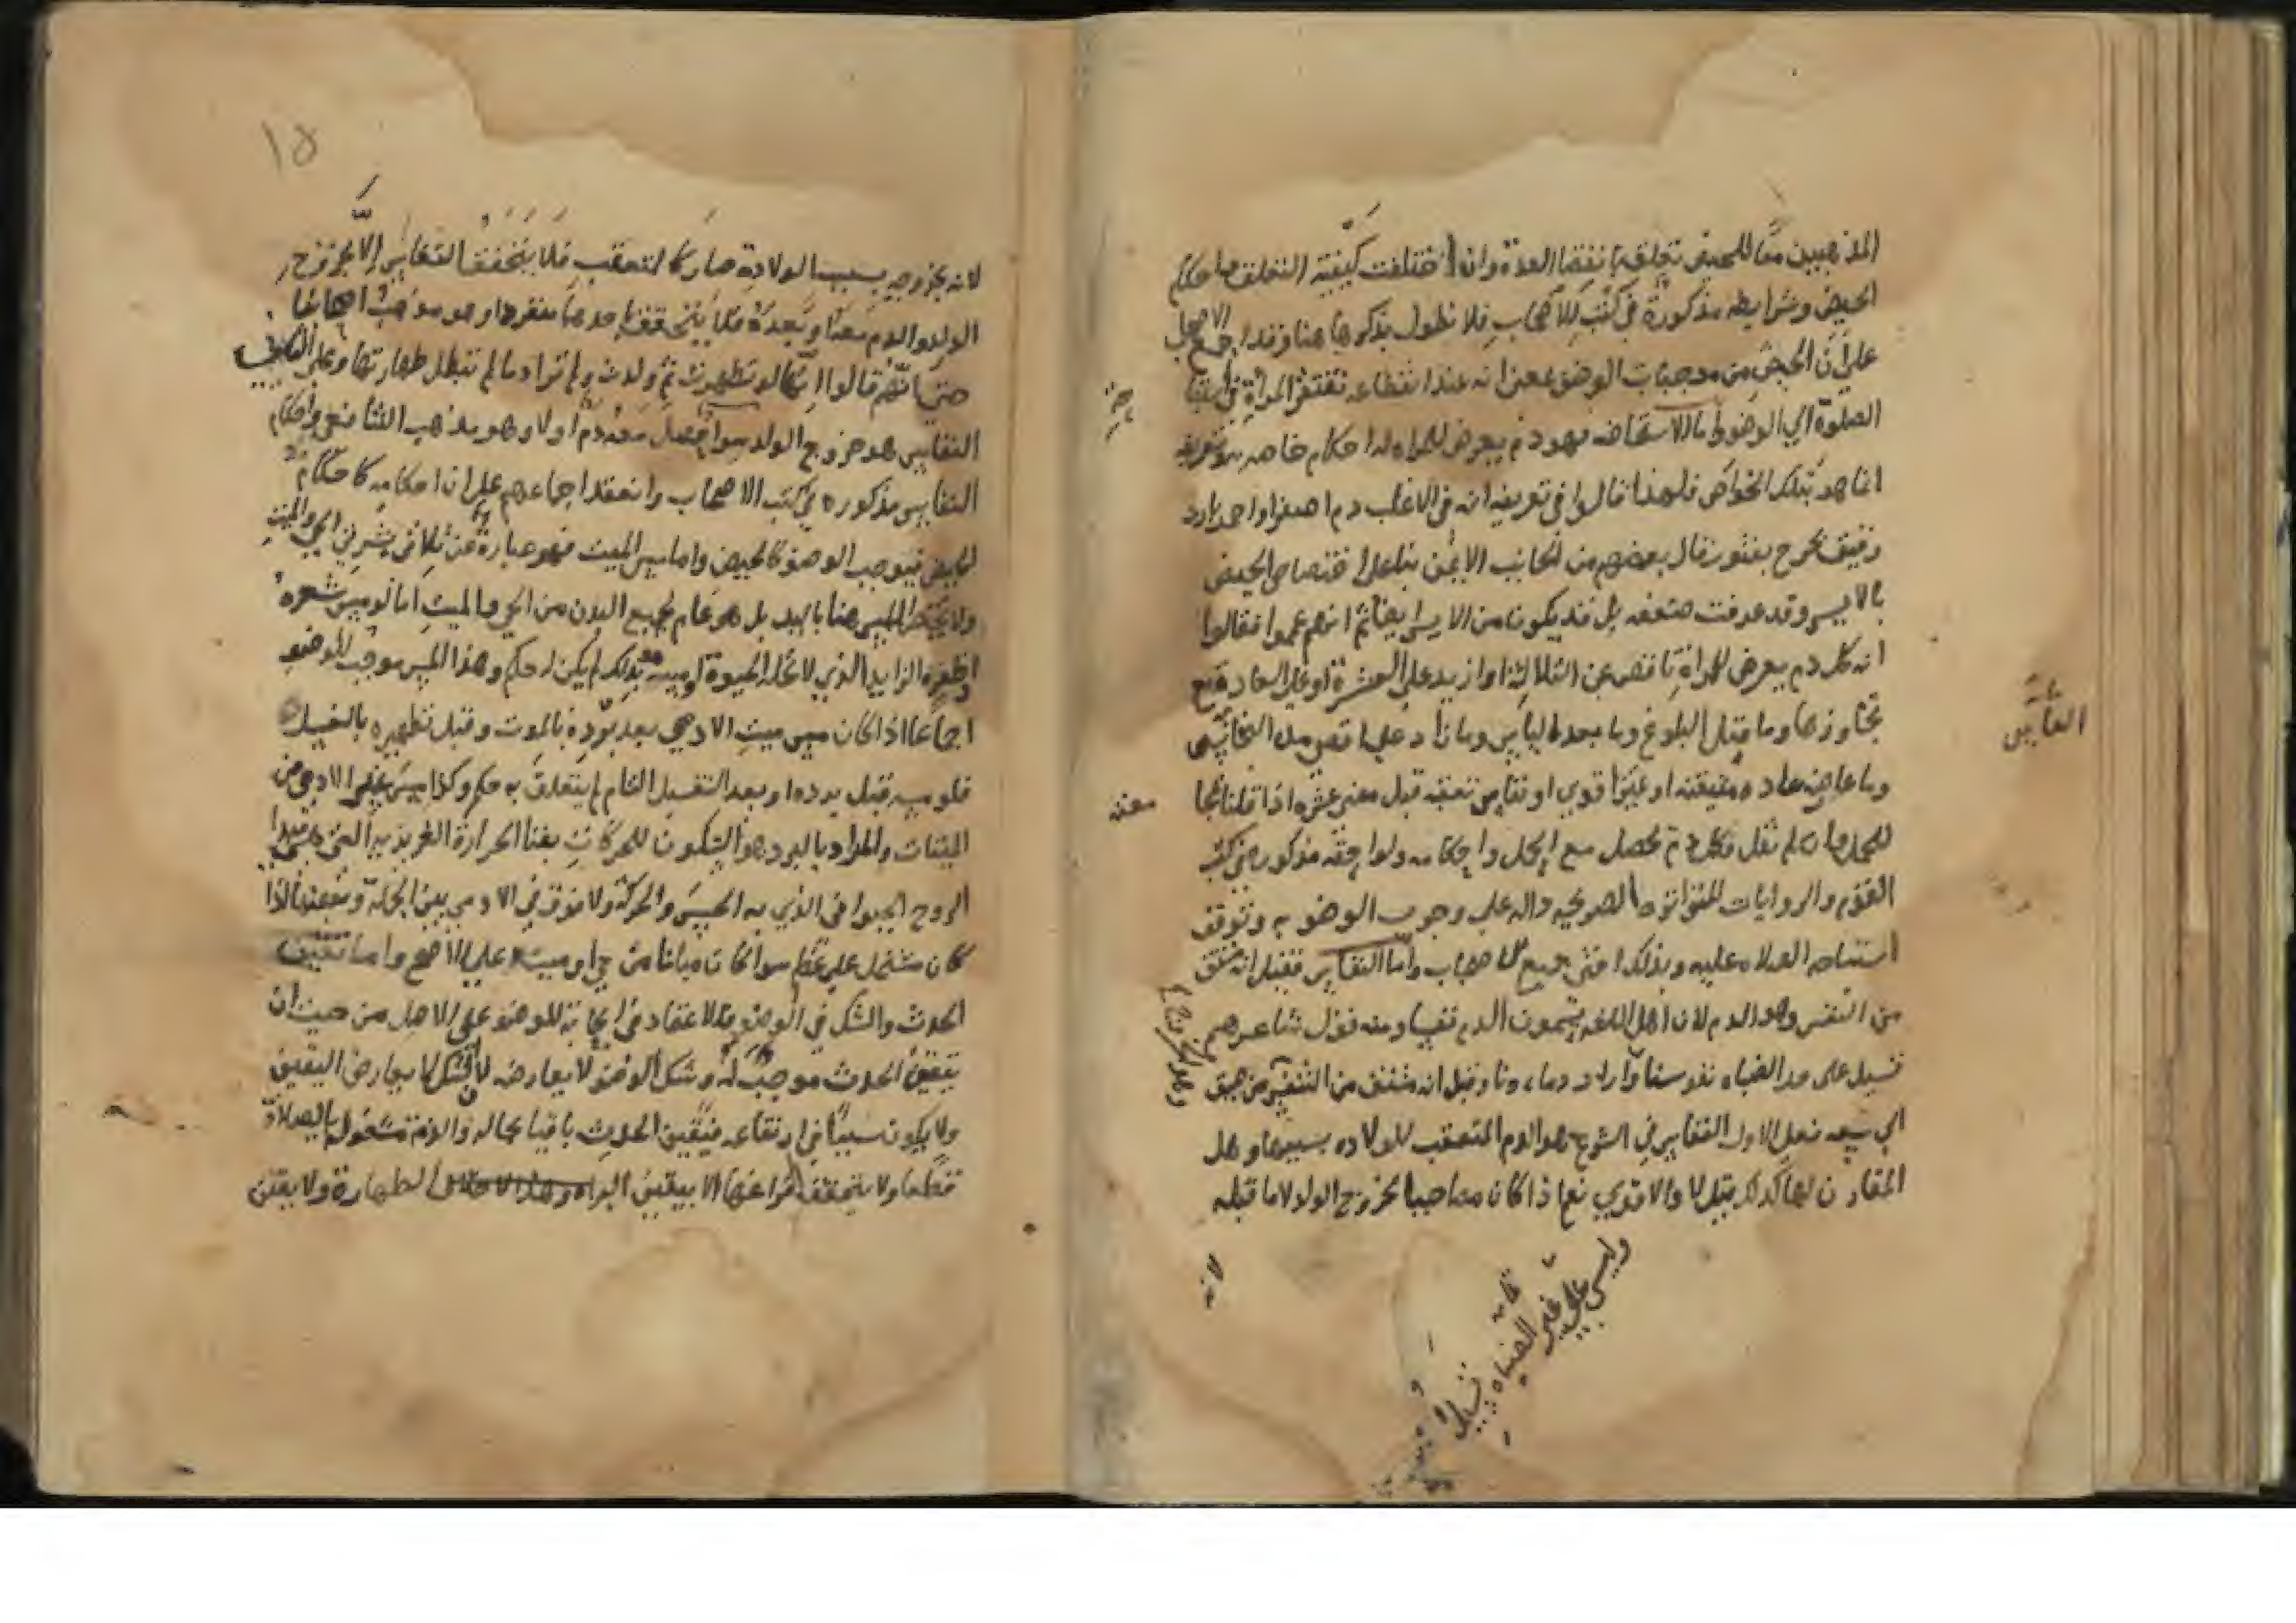 المذهبين معا للحيض تعلق بانقضا العدة وان اختلفت كيفية التعلق واحكام
الحيض وشرايطه مذكورة في كتب الاصحاب فلا نطول بذكرها هنا وقد اجمع الاصحاب
على ان الحيض من موجبات الوضو بمعنى انه عند انقطاعه تفتقر المراة في استباحة
الصلوة الي الوضو واما الاستحاضه فهو دم يعرض للمراه له احكام خاصه تعريفه
انما هو بتلك الخواص فلهذا قالوا في تعريفه انه في الاغلب دم اصفر او احمر بارد
رقيق يخرج بفتور قال بعضهم من الجانب الايمن بنا على اختصاص الحيض
بالايسر وقد عرفت ضعفه بل قد يكون من الايسر ايضا ثم انهم عمموا فقالوا
انه كل دم يعرض للمراة ناقص عن الثلاثة او ازيد على العشرة او على العاده مع
تجاوزها وما قبل البلوغ وما بعد الياس وما زاد على اقصى مدة النفاس
وما عاد عاده مستقيمة او تميزا قوي او نفاس تعقبه قبل مضي عشره اذا قلنا بانها
للحمل وان لم نقل فكل دم تحصل مع الحمل واحكامه ولواحقه مذكوره في كتب
القوم والروايات المتواتره الصريحه داله على وجوب الوضو به وتوقف
استباحه الصلاه عليه وبذلك افتى جميع الاصحاب واما النفاس فقيل انه مشتق
من النفس وهو الدم لان اهل اللغه يسمون الدم نفسا ومنه قول شاعرهم
تسيل على حد الظباه نفوسنا واراد دماءنا وقيل انه مشتق من التنفس من ضيق
الي سعه فعلى الاول النفاس في الشرع هو الدم المتعقب للولاده بسببها وهل
المقارن لها كذلك قيل لا والاقوي نعم اذا كان مصاحبا لخروج الولد لا ما قبله
لانه
وليس على غير الظباه تسيل
النفاس
١٥
لانه بخروجه بسبب الولادة صار كالمتعقب فلا يتحقق النفاس الا بخروج
الولد والدم معه او بعده فلا يتحقق باحدهما منفردا وهو مذهب اصحابنا
حتى انهم قالوا انها لو تطهرت ثم ولدت ولم ترا دما لم تبطل طهارتها وعلى الثاني
النفاس هو خروج الولد سوا حصل معه دم اولا وهو مذهب الشافعي واحكام
النفاس مذكوره في كتب الاصحاب وانعقد اجماعهم على ان احكامه كاحكام
الحايض فيوجب الوضو كالحيض واما مس الميت فهو عبارة عن تلاقي بشرتي الحي والميت
ولا يختص المس هنا باليد بل هو عام لجميع البدن من الحي والميت اما لو مس شعره
او ظفره الزايد الذي لا تحله الحيوة او مسه بذلك لم يكن له حكم وهذا المس موجب للوضو
اجماعا اذا كان مس ميت الادمي بعد برده بالموت وقبل تطهيره بالغسل
فلو مسه قبل برده او بعد التغسيل التام لم يتعلق به حكم وكذا مس غير الادمي من
الميتات والمراد بالبرد هو السكون للحركات بفنا الحرارة الغريزيه التي هي مبدا
الروح الحيواني الذي به الحس والحركة ولا فرق في الادمي بين الجملة وبعضها اذا
كان مشتمل على عظم سوا كان مبانا من حي او ميت على الاصح واما تيقن
الحدث والشك في الوضو فلا اعتقاد في ايجابه للوضو على الاصل من حيث ان
تيقن الحدث موجب له وشك الوضو لا يعارضه لان الشك لا يعارض اليقين
ولا يكون سببا في ارتفاعه فتيقن الحدث باقيا بحاله والذمة مشغولة بالصلاة
قطعا ولا يتحقق فراغها الا بيقين البراه لطهارة ولا يقين